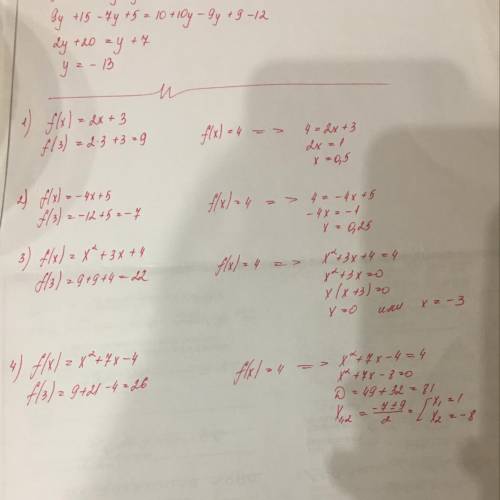 9y + 15 - 7y + 5 = 10 + 10y - 9y + 9 - 12
2y + 20 = y + 7
y = - 13
1) f(x) = 2x + 3
f(3) = 2·3 + 3 = 9
f(x) = 4 => 4 = 2x + 3
2x = 1
x = 0,5
2) f(x) = -4x + 5
f(3) = -12 + 5 = -7
f(x) = 4 => 4 = -4x + 5
-4x = -1
x = 0,25
3) f(x) = x² + 3x + 4
f(3) = 9 + 9 + 4 = 22
f(x) = 4 => x² + 3x + 4 = 4
x² + 3x = 0
x(x + 3) = 0
x = 0 или x = -3
4) f(x) = x² + 7x - 4
f(3) = 9 + 21 - 4 = 26
f(x) = 4 => x² + 7x - 4 = 4
x² + 7x - 8 = 0
D = 49 + 32 = 81
x₁,₂ = (-7 ± 9)/2 = [ x₁ = 1
x₂ = -8